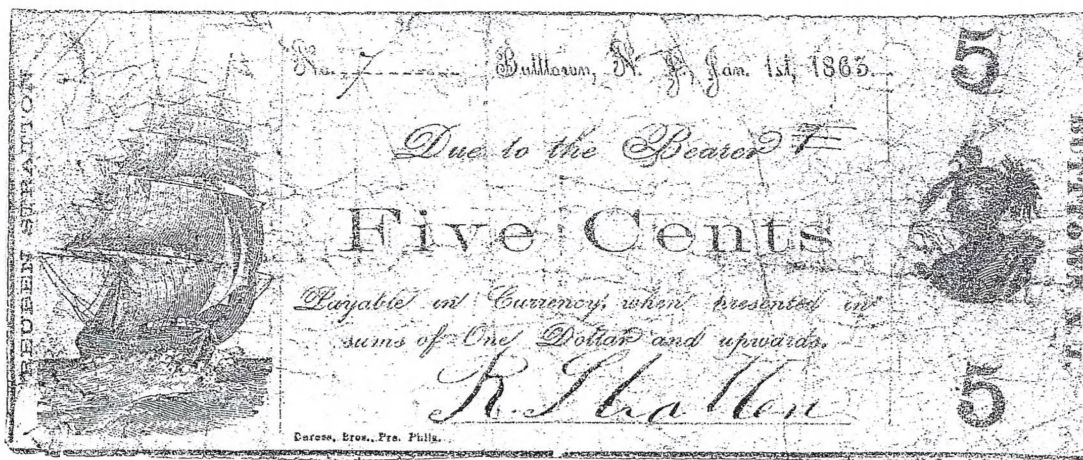 REUBEN STRATTON
No. 7 Bulltown, N. J., Jan. 1st, 1863
5
Due to the Bearer
Five Cents
Payable in Currency, when presented in
sums of One Dollar and upwards.
R. Stratton
5
Bros., Prs. Phila.